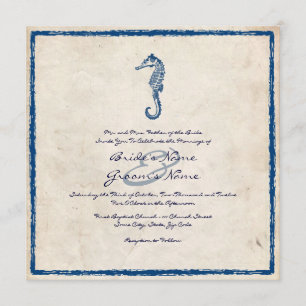 Mr. and Mrs. Father of the Bride
Invite You To Celebrate the Marriage of
Bride's Name
&
Groom's Name
Saturday the Third of October, Two Thousand and Twelve
Five O'clock in the Afternoon
First Baptist Church ~ 111 Church Street
Some City, State, Zip Code
Reception to Follow